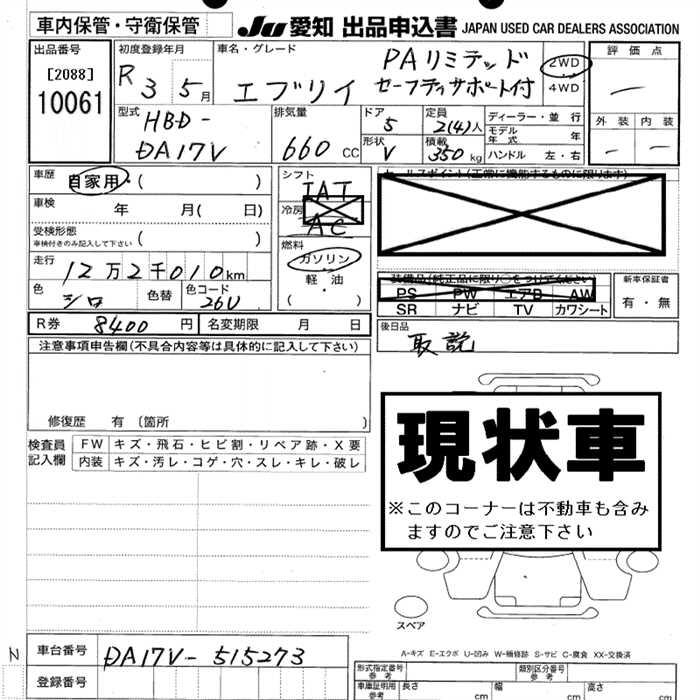 車内保管・守衛保管
JU 愛知 出品申込書 JAPAN USED CAR DEALERS ASSOCIATION
出品番号
[2088]
10061
初度登録年月
R 3 5月
車名・グレード
エブリイ
PAリミテッド
セーフティサポート付
2WD
4WD
評価点
外装 内装
型式
HBD-
DA17V
排気量
660 cc
ドア
5
形状
V
定員
2(4)人
積載
350kg
ディーラー・並行
モデル年式 年
ハンドル 左・右
車歴
自家用 ( )
車検 年 月( 日)
受検形態
車検付きのみ記入して下さい ( )
走行
12万2千010km
色
シロ
色替
色コード
26U
シフト
IAT
冷房
AC
燃料
ガソリン
軽油
( ・ )
セールスポイント(正常に機能するものに限ります)
装備品(純正品に限り○をつけてください)
PS PW エアB AW
SR ナビ TV カワシート
新車保証書
有・無
R券 8400円
名変期限 月 日
後日品
取説
注意事項申告欄(不具合内容等は具体的に記入して下さい)
修復歴 有〔箇所 〕
検査員
記入欄
FW キズ・飛石・ヒビ割・リペア跡・X要
内装 キズ・汚レ・コゲ・穴・スレ・キレ・破レ
現状車
※このコーナーは不動車も含み
ますのでご注意下さい
スペア
A-キズ E-エクボ U-凹み W-補修跡 S-サビ C-腐食 XX-交換済
N
車台番号 DA17V-515273
登録番号
形式指定番号
参考
類別区分番号
参考
車庫証明用
参考
長さ cm
幅 cm
高さ cm